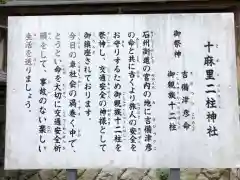 十麻里二柱神社
御祭神　吉備津彦命
御眷族十二柱
石州街道の宮内の地に吉備津彦
の命と共に古くより旅人の安全を
お守りするため御眷族十二柱を
祭神し、交通安全の神様として
御鎮座されております。
今日の車社会の渦巻く中で、
とうとい命を大切に交通安全祈
願をして、事故のない楽しい
生活を送りましょう。